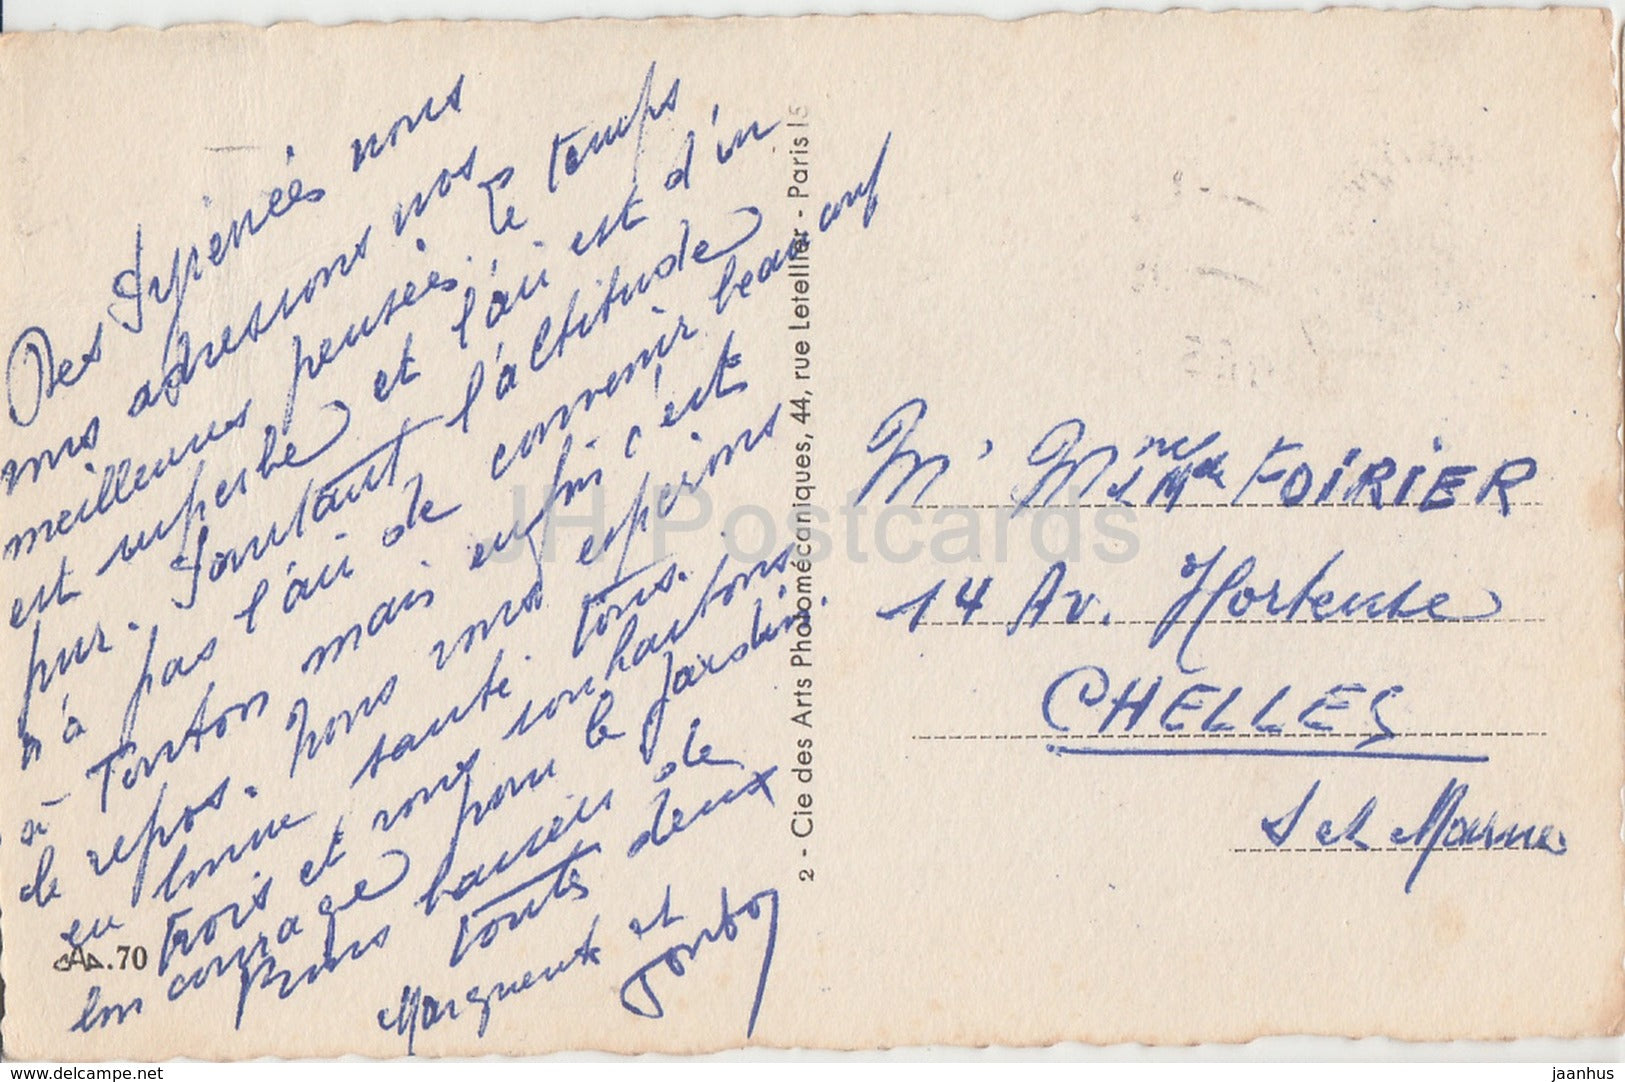 Des Pyrénées nous
vous adressons nos
meilleures pensées. Le temps
est superbe et l'air est d'un
pur. Pourtant l'altitude
n'a pas l'air de convenir beaucoup
à Tonton mais enfin c'est
de repos. Nous vous espérons
en bonne santé tous
trois et vous souhaitons
bon courage pour le jardin.
Bons baisers de
toutes deux
Marguerite et
2 - Cie des Arts Photomécaniques, 44, rue Letellier - Paris 15
.70
Mr Mme FOIRIER
14 Av. Hortense
CHELLES
S et Marne
JH Postcards
delcampe.net
jaanhus